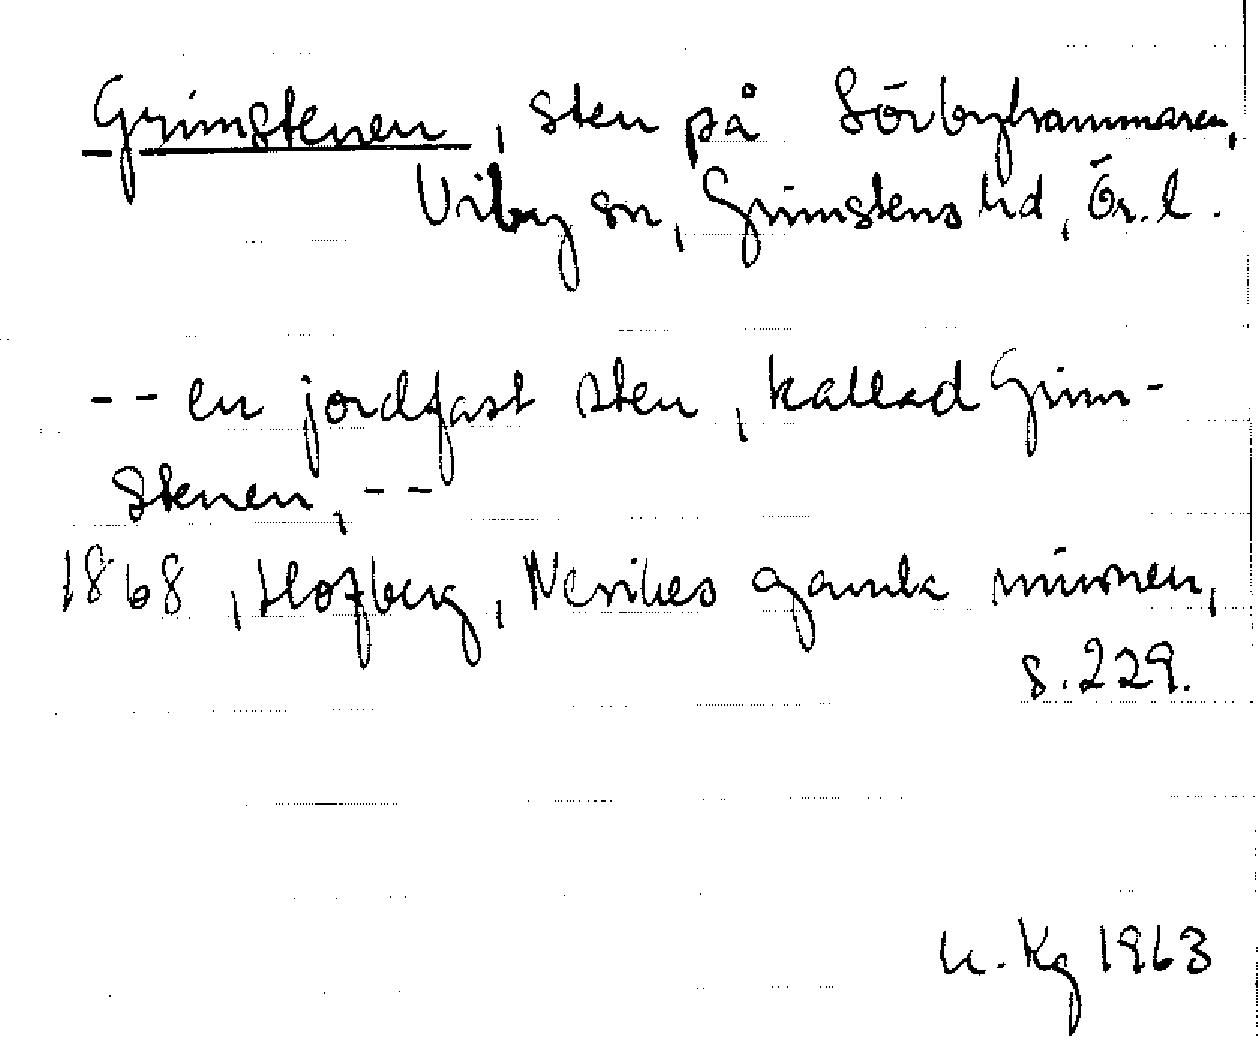 Grimstenen, sten på Sörbyhammaren,
Viby sn, Grimstens hd, Ör. l.
-- en jordfast sten, kallad Grim-
stenen, --
1868, Hofberg, Nerikes gamla minnen,
s. 229.
u. Kg 1963